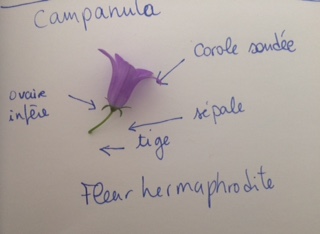 Campanula
Corole soudée
ovaire
infère
sépale
tige
Fleur hermaphrodite